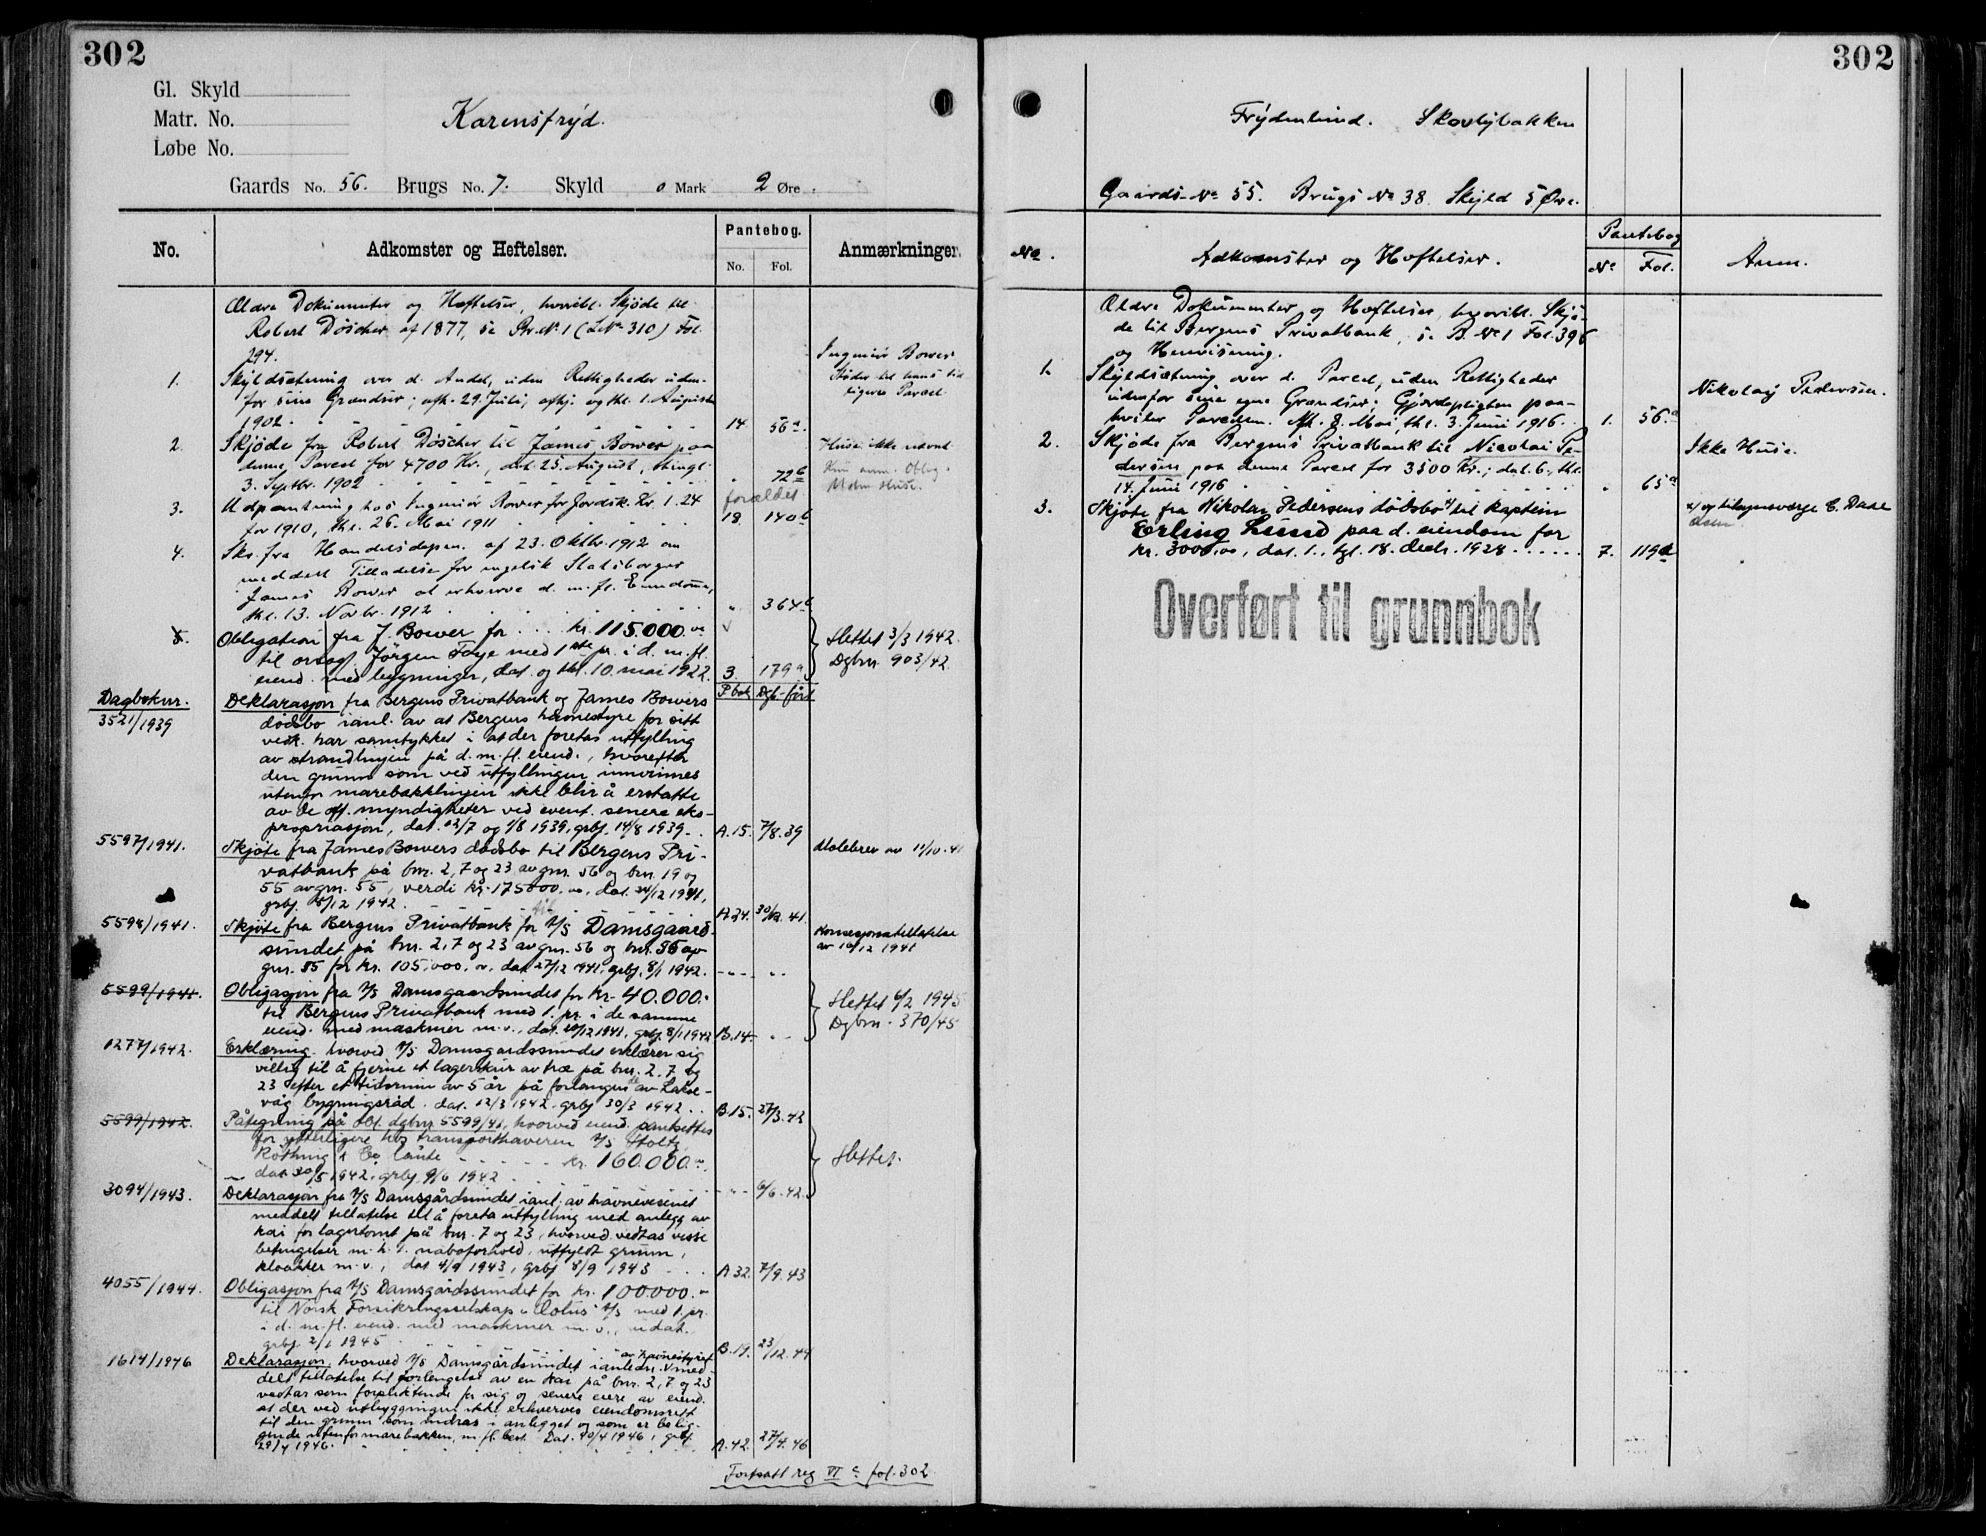 302
Gl. Skyld
Matr. No.
Løbe No.
Karensfryd.
Gaards No. 56. Brugs No. 7. Skyld 0 Mark 2 Øre.
No.
Adkomster og Heftelser.
Pantebog.
No. Fol.
Anmærkninger.
Ældre Dokumenter og Heftelser, hvoribl. Skjøde til
Robert Döscher af 1877, se Pr. N. 1 (LNo 310) Fol.
294.
1. Skyldsætning over d. Andel, uden Rettigheder uden-
for sine Grændser; afh. 29. Juli, afhj. og thl. 1. August
1902 14 56a.
Ingeniör Bower
støder til hans tid
ligere Parcel
2. Skjøde fra Robert Döscher til James Bower paa
denne Parcel for 4700 Kr., dat. 25. August, thingl.
3. Septbr. 1902 " 72b
Huse ikke nævnt
Kun anm. Oblig.
3. Udpantning hos Ingeniør Bower for Jordsk. Kr. 1.24
for 1910, thl. 26. Mai 1911 18 140b
forældet
4. Skr. fra Handelsdepm. af 23. Oktbr. 1912 om
meddelt Tilladelse for engelsk Statsborger
James Bower at erhverve d. m. fl. Eiendomme,
thl. 13. Novbr. 1912 " 364b
5. Obligation fra J. Bower for kr. 115.000.00
til orsagf. Jörgen Faye med 1ste pr. i d. m. fl.
eiend. med bygninger, dat. og thl. 10. mai 1922. 3 179a
Slettet 3/3 1942.
Dgbnr. 903/42
Dagboknr. P.bok Dgb-ført
3521/1939
Deklarasjon fra Bergens Privatbank og James Bowers
dødsbo i anl. av at Bergens havnestyre for sitt
vedk. har samtykket i at der foretas utfylling
av strandlinjen på d. m. fl. eiend., hvorefter
den grunn som ved utfyllingen innvinnes
utenfor marebakklinjen ikke blir å erstatte
av de off. myndigheter ved event. senere eks-
propriasjon, dat. 12/7 og 1/8 1939, grbj. 14/8 1939. A.15. 7/8.39
5597/1941.
Skjöte fra James Bowers dødsbo til Bergens Pri-
vatbank på bnr. 2, 7 og 23 av gnr. 56 og bnr. 19 og
55 av gnr. 55, verdi kr. 175000.00, dat. 24/12 1941,
grbj. 8/12 1942. A.24. 30/12.41
Målebrev av 11/10.41
5598/1941.
Skjöte fra Bergens Privatbank til A/S Damsgaard-
sundet på bnr. 2, 7 og 23 av gnr. 56 og bnr. 55 av
gnr. 55 for kr. 105.000.00, dat. 27/12 1941, grbj. 8/1 1942.
Konsesjonstillatelse
av 16/12 1941
5599/1941.
Obligasjon fra A/S Damsgaardsundet for kr. 40.000.-
til Bergens Privatbank med 1. pr. i de samme
eiend. med maskiner m. v., dat. 28/12 1941, grbj. 8/1 1942 B.14
Slettet 6/2 1945
Dgbnr. 370/45
1277/1942.
Erklæring hvorved A/S Damsgardssundet erklærer sig
villig til å fjerne et lagerskur av træ på bnr. 2, 7 og
23 efter et tidsrum av 5 år på forlangende av Lakse-
våg bygningsråd. dat. 12/3 1942. grbj. 30/3 1942 B.15. 27/3.42
5599/1942.
Påtegning på obl. dgbnr 5599/41, hvorved eiend. pantsettes
for ytterligere hos transporthaveren A/S Stoltz
Röthing & Co lånte kr. 160.000.00.
dat. 30/5 1942. grbj. 9/6 1942 6/6.42.
Slettet.
3094/1943.
Deklarasjon fra A/S Damsgårdsundet i anl. av havnevesenet
meddelt tillatelse til å foreta utfylling med anlegg av
kai for lagertomt på bnr. 7 og 23, hvorved vedtas visse
betingelser m. h. t. naboforhold, utfyldt grunn,
kloakker m. v., dat 4/9 1943, grbj 8/9 1943 A 32. 7/9.43
4055/1944.
Obligasjon fra A/S Damsgårdssundet for kr. 100.000.-
til Norsk Forsikringsselskap "Lotus" A/S med 1. pr.
i d. m. fl. eiend. med maskiner m. v., udat.
grbj 2/1 1945 B.19. 23/12.44
1614/1946
Deklarasjon hvorved A/S Damsgårdsundet i anledn. av havnestyret med-
delt tillatelse til forlengelse av en kai på bnr. 2, 7 og 23
vedtar som forpliktende for sig og senere eiere av eiend.
at der ved utbyggningen ikke erhverves eiendomsrett
til den grunn som endres i anlegget og som er belig-
gende utenfor marebakken, m. fl. best. Dat. 20/4 1946, grbj.
29/4 1946. A.42. 27/4.46
Fortsatt reg VI c fol. 302
302
Frydenlund. Skovlybakken
Gaards-No 55. Brugs No 38. Skyld 5 Øre.
No.
Adkomster og Heftelser.
Pantebog
No Fol.
Anm.
Ældre Dokumenter og Heftelser, hvoribl. Skjö-
de til Bergens Privatbank, s. B. No 1 Fol. 396
og Henvisning.
1. Skyldsætning over d. Parcel, uden Rettigheder
udenfor sine egne Grændser; Gjerdepligten paa-
hviler Parcellen. Afh. 8. Mai, thl. 3. Juni 1916. 1. 56a
Nikolay Pedersen.
2. Skjøde fra Bergens Privatbank til Nicolai Pe-
dersen paa denne Parcel for 3500 Kr.; dat. 6., thl.
14. Juni 1916 " 65a
Ikke Huse.
3. Skjøte fra Nikolai Pedersens dødsbo x) til kaptein
Erling Lund paa d. eiendom for
kr. 3000,00, dat. 1., tgl. 18. decbr. 1928 7. 119a
x) og tilsynsverge E. Dahl
Olsen
Overført til grunnbok